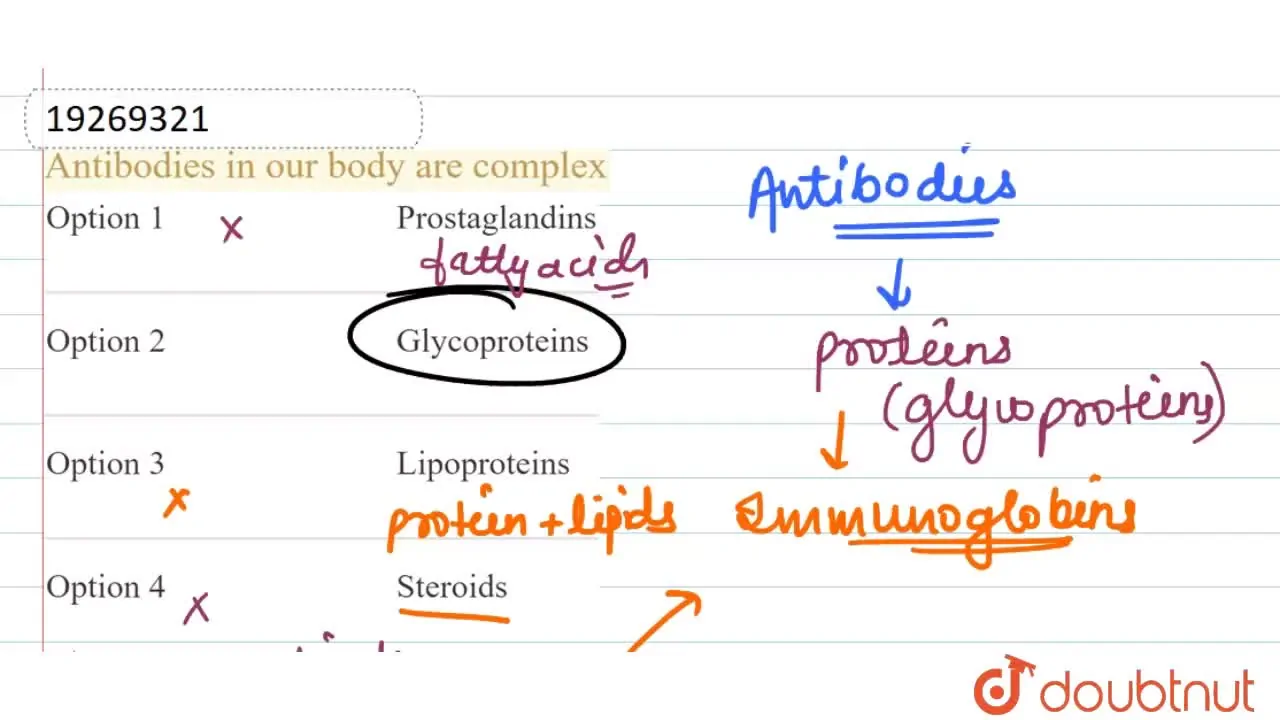 19269321
Antibodies in our body are complex
Option 1 x Prostaglandins
fatty acids
Option 2 Glycoproteins
Option 3 Lipoproteins
x protein + lipids
Option 4 x Steroids
Antibodies
proteins
(glycoproteins)
Immunoglobins
doubtnut